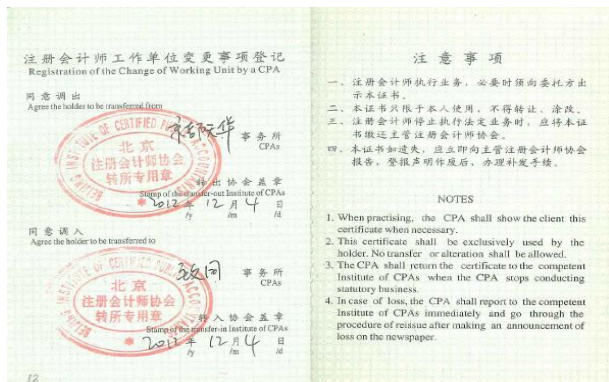 注册会计师工作单位变更事项登记
Registration of the Change of Working Unit by a CPA
同意调出
Agree the holder to be transferred from
京都天华 事务所
CPAs
BEIJING INSTITUTE OF CERTIFIED PUBLIC ACCOUNTANTS
北京
注册会计师协会
转所专用章
转出协会盖章
Stamp of the transfer-out Institute of CPAs
2012年12月4日
/y /m /d
同意调入
Agree the holder to be transferred to
致同 事务所
CPAs
BEIJING INSTITUTE OF CERTIFIED PUBLIC ACCOUNTANTS
北京
注册会计师协会
转所专用章
转入协会盖章
Stamp of the transfer-in Institute of CPAs
2012年12月4日
/y /m /d
12
注意事项
一、注册会计师执行业务,必要时须向委托方出
示本证书。
二、本证书只限于本人使用,不得转让、涂改。
三、注册会计师停止执行法定业务时,应将本证
书缴还主管注册会计师协会。
四、本证书如遗失,应立即向主管注册会计师协会
报告,登报声明作废后,办理补发手续。
NOTES
1. When practising, the CPA shall show the client this
certificate when necessary.
2. This certificate shall be exclusively used by the
holder. No transfer or alteration shall be allowed.
3. The CPA shall return the certificate to the competent
Institute of CPAs when the CPA stops conducting
statutory business.
4. In case of loss, the CPA shall report to the competent
Institute of CPAs immediately and go through the
procedure of reissue after making an announcement of
loss on the newspaper.